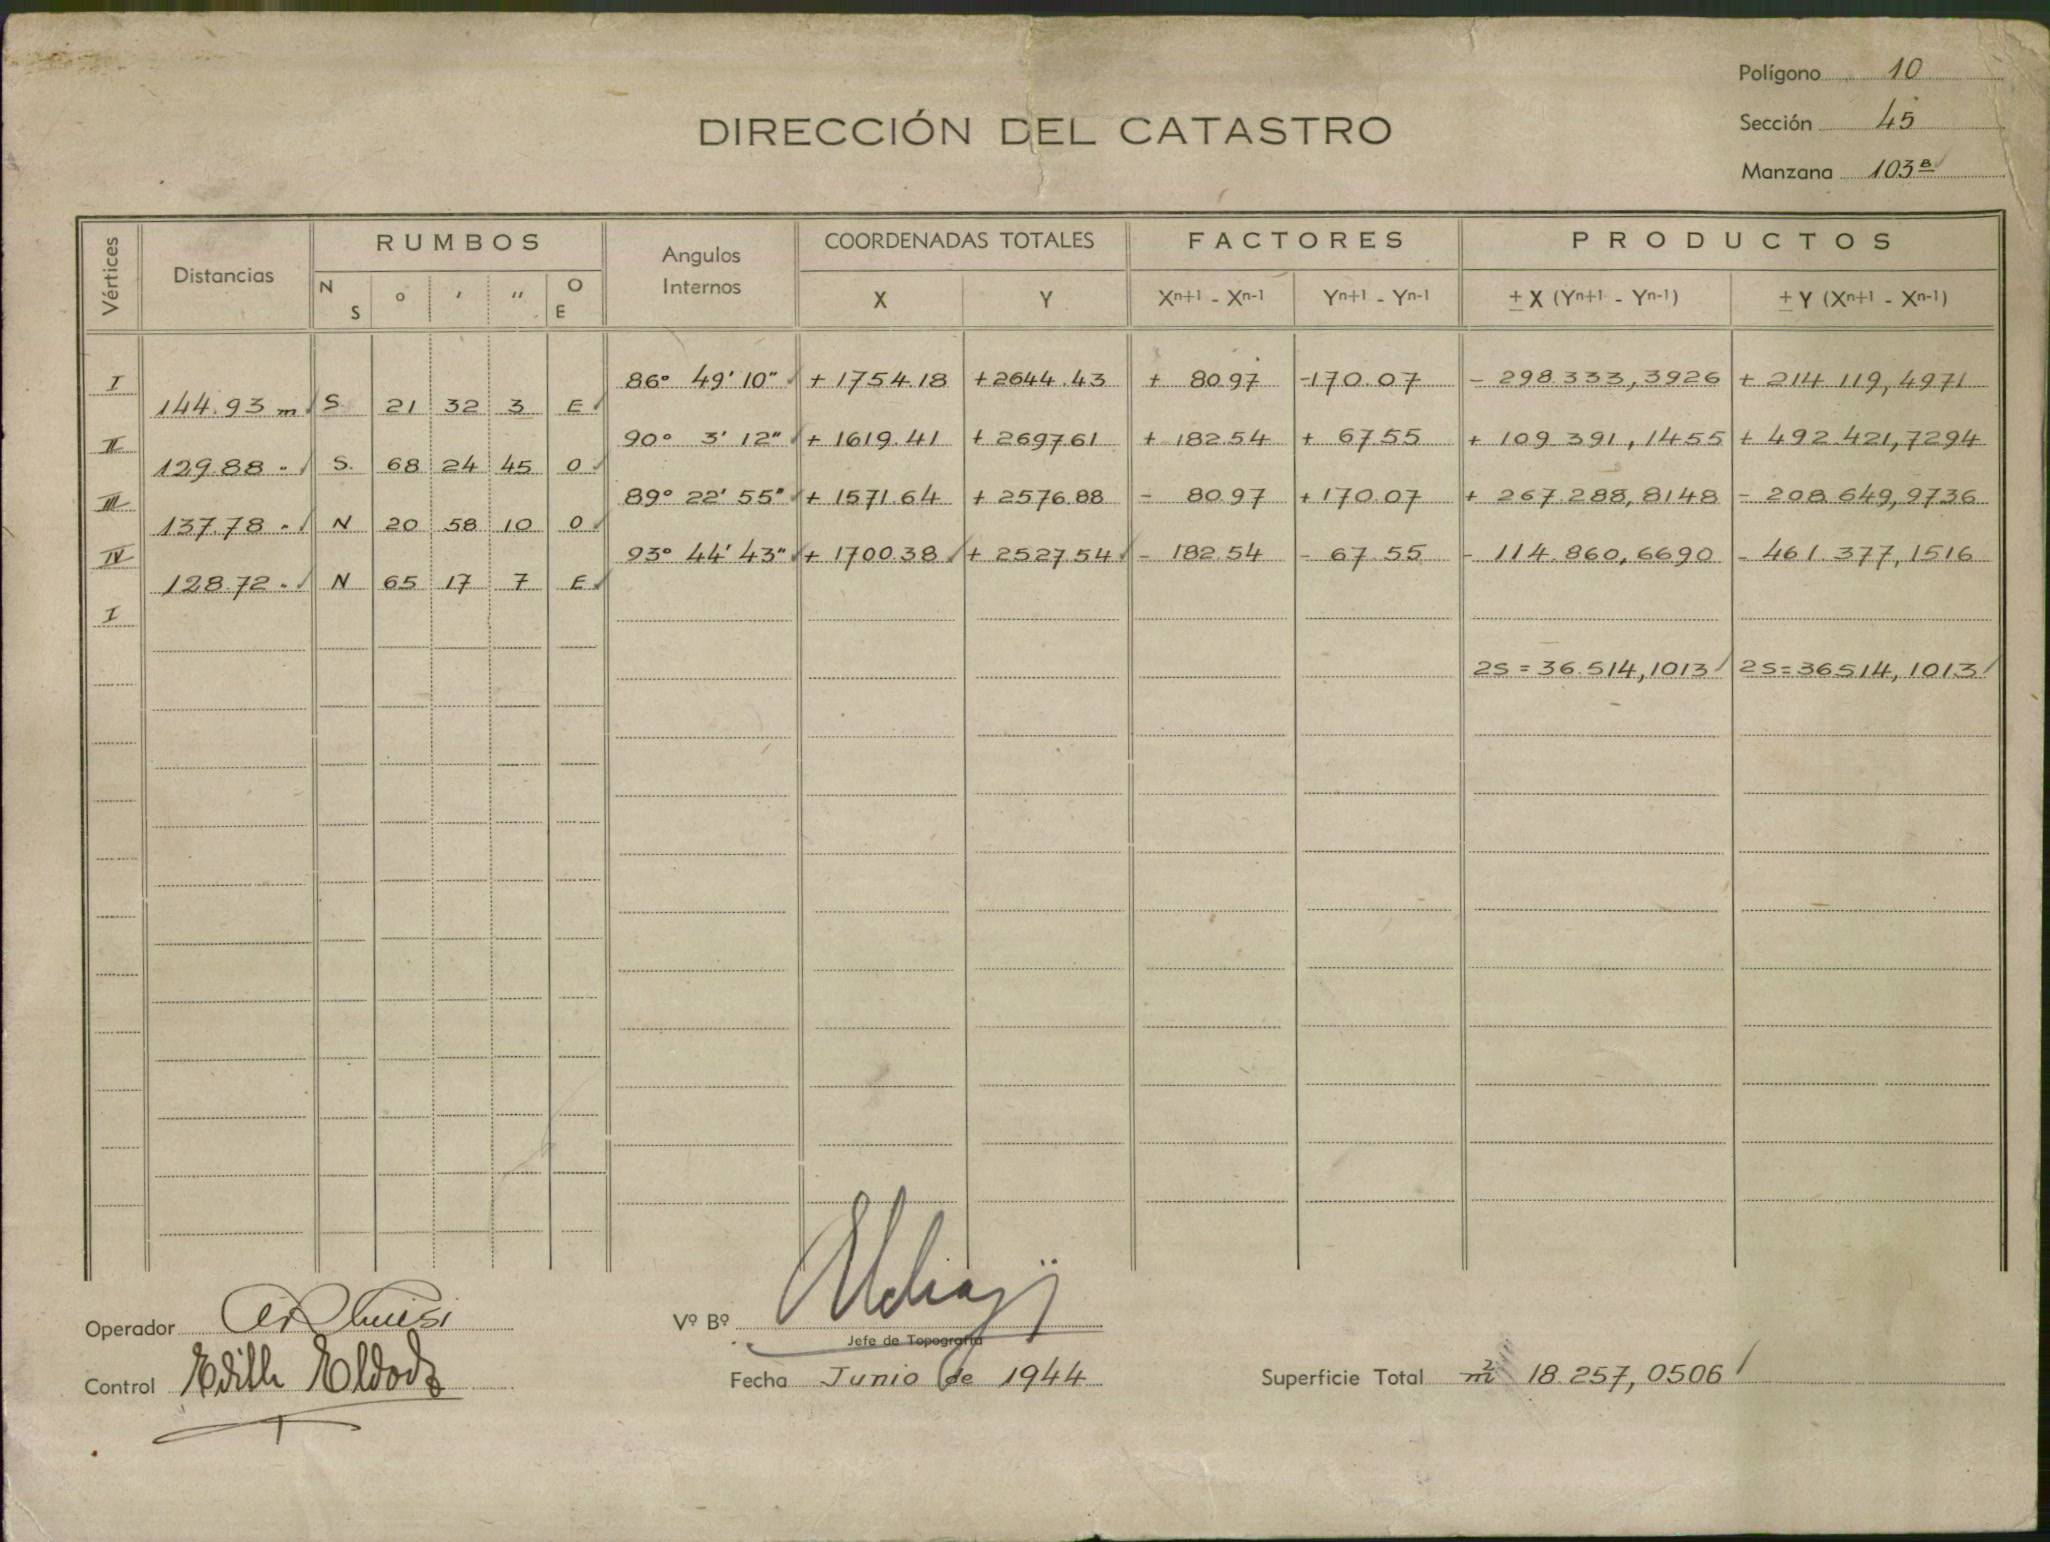 Polígono 10
DIRECCIÓN DEL CATASTRO
Sección 45
Manzana 103 B
Vértices Distancias RUMBOS Angulos Internos COORDENADAS TOTALES FACTORES PRODUCTOS
N S ° ' " O E X Y Xn+1 - Xn-1 Yn+1 - Yn-1 ± X (Yn+1 - Yn-1) ± Y (Xn+1 - Xn-1)
I 86° 49' 10" + 1754.18 +2644.43 + 80.97 -170.07 - 298.333,3926 + 214.119,4971
144.93 m S. 21 32 3 E
II 90° 3' 12" + 1619.41 + 2697.61 + 182.54 + 67.55 + 109.391,1455 + 492.421,7294
129.88 " S. 68 24 45 O
III 89° 22' 55" + 1571.64 + 2576.88 - 80.97 +170.07 + 267.288,8148 - 208.649,9736
137.78 " N 20 58 10 O
IV 93° 44' 43" + 1700.38 + 2527.54 - 182.54 - 67.55 - 114.860,6690 - 461.377,1516
128.72 " N 65 17 7 E
I
2S = 36.514,1013 2S = 36514,1013
Operador
Vº Bº
Jefe de Topografía
Control Edith
Fecha Junio de 1944
Superficie Total m² 18.257,0506